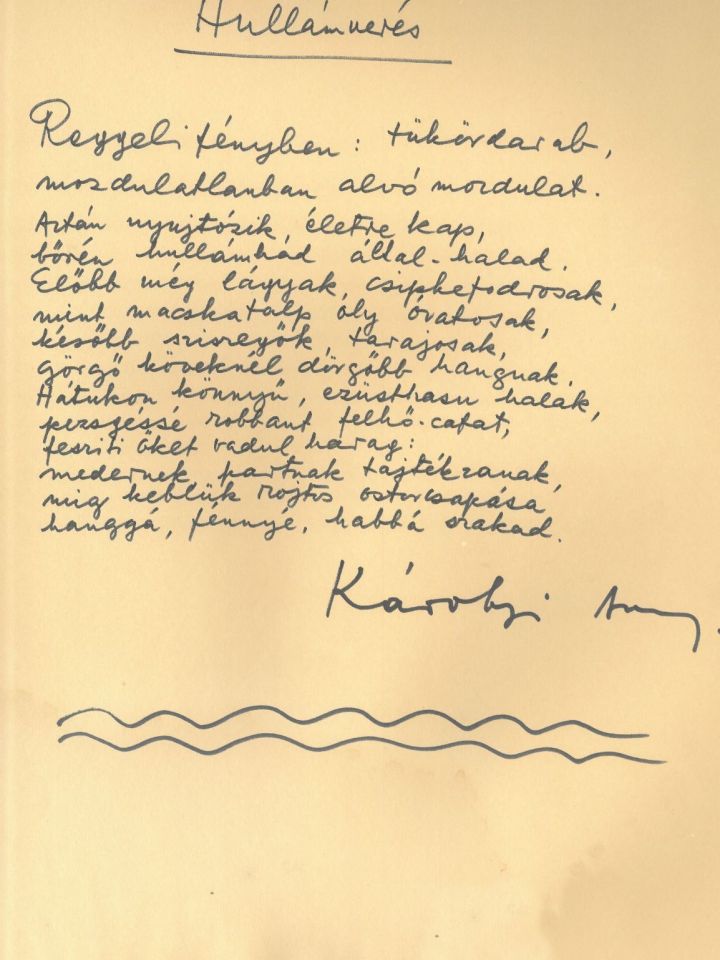 Hullámverés
Reggeli fényben: tükördarab,
mozdulatlanban alvó mozdulat.
Aztán nyujtózik, életre kap,
bőrén hullámhád által-halad.
Előbb még lágyak, csipkefodrosak,
mint macskatalp oly óvatosak,
később sziszegők, tarajosak,
görgő köveknél dörgőbb hangnak.
Hátukon könnyű, ezüsthasu halak,
pezsgéssé robbant felhő-cafat,
feszíti őket vadul harag:
medernek, partnak tajtékzanak,
míg keblük rojtos ostorcsapása
hanggá, fénnyé, habbá szakad.
Károlyi Amy